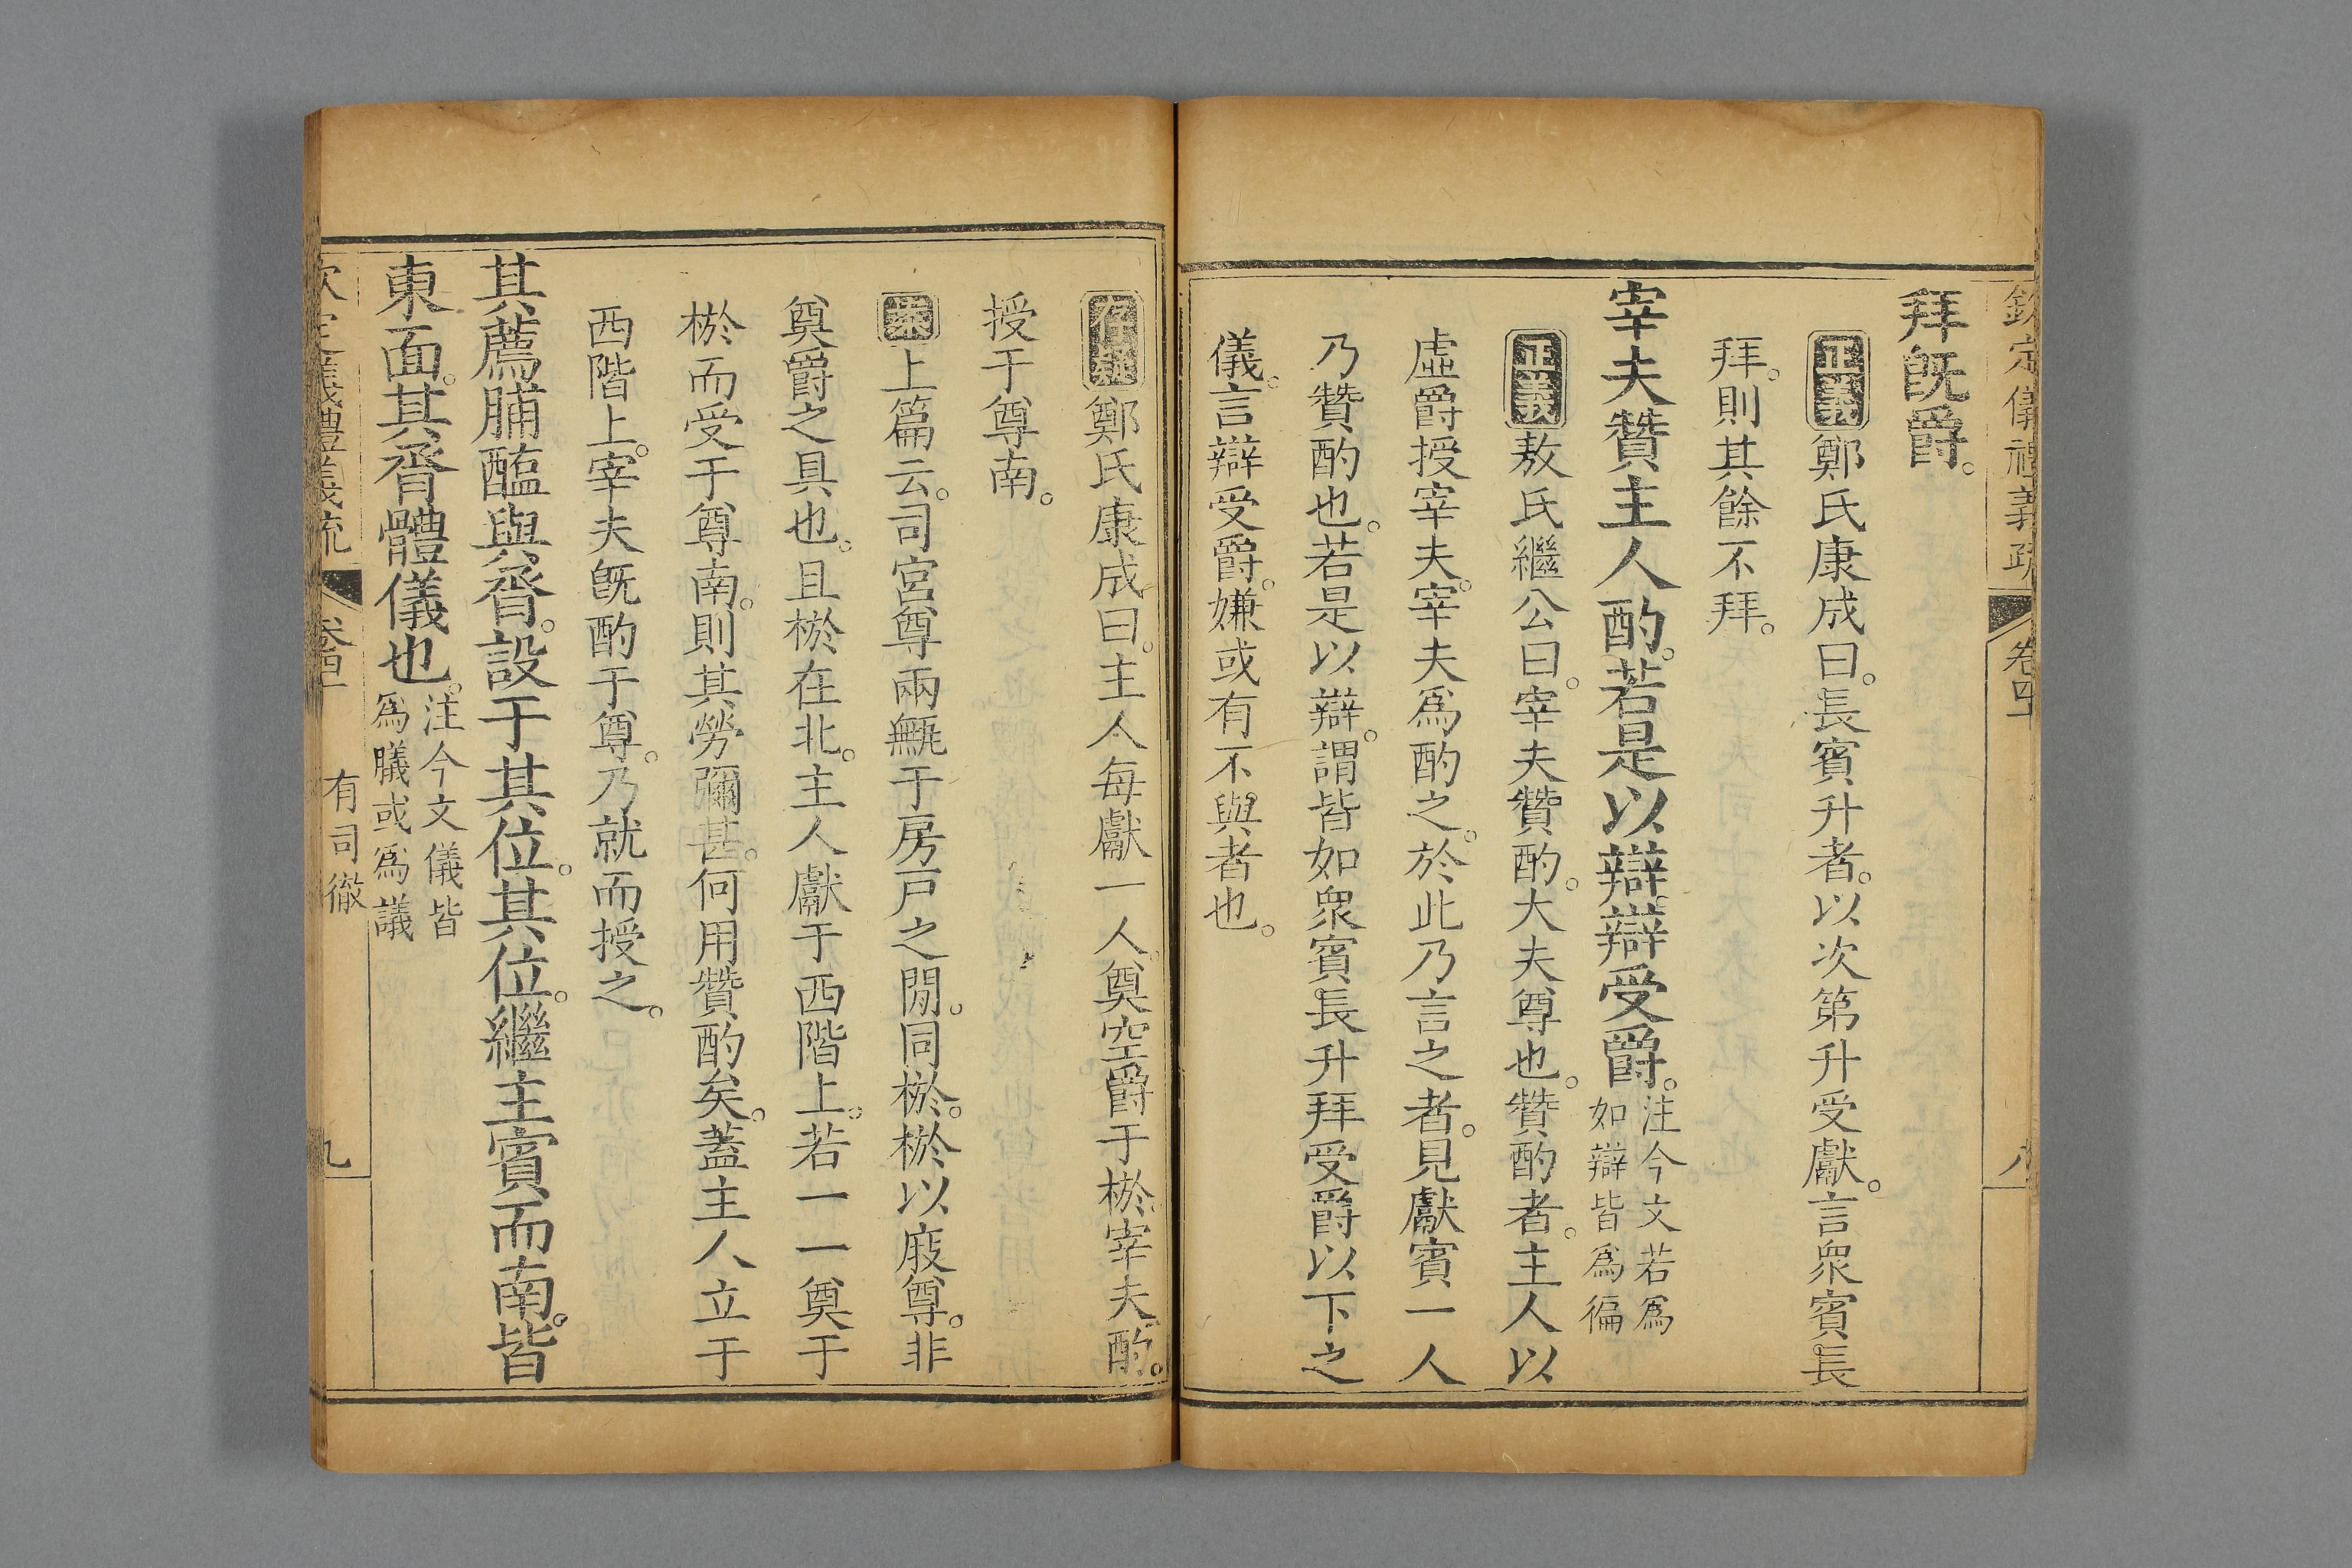 欽定儀禮義疏 卷四十 八
拜旣爵。
正義鄭氏康成曰。長賓升者。以次第升受獻。言衆賓長
拜。則其餘不拜。
宰夫贊主人酌。若是以辯。辯受爵。注今文若爲如辯皆爲徧
正義敖氏繼公曰。宰夫贊酌。大夫尊也。贊酌者。主人以
虛爵授宰夫。宰夫爲酌之。於此乃言之者。見獻賓一人
乃贊酌也。若是以辯。謂皆如衆賓長升拜受爵以下之
儀。言辯受爵。嫌或有不與者也。
存疑鄭氏康成曰。主人每獻一人。奠空爵于棜。宰夫酌。
授于尊南。
案上篇云。司宮尊兩甒于房戸之閒。同棜。棜以庪尊。非
奠爵之具也。且棜在北。主人獻于西階上。若一一奠于
棜而受于尊南。則其勞彌甚。何用贊酌矣。蓋主人立于
西階上。宰夫旣酌于尊。乃就而授之。
其薦脯醢與脀。設于其位。其位。繼主賓而南。皆
東面。其脀體儀也。注今文儀皆爲䑔或爲議
欽定儀禮義疏 卷四十 有司徹 九